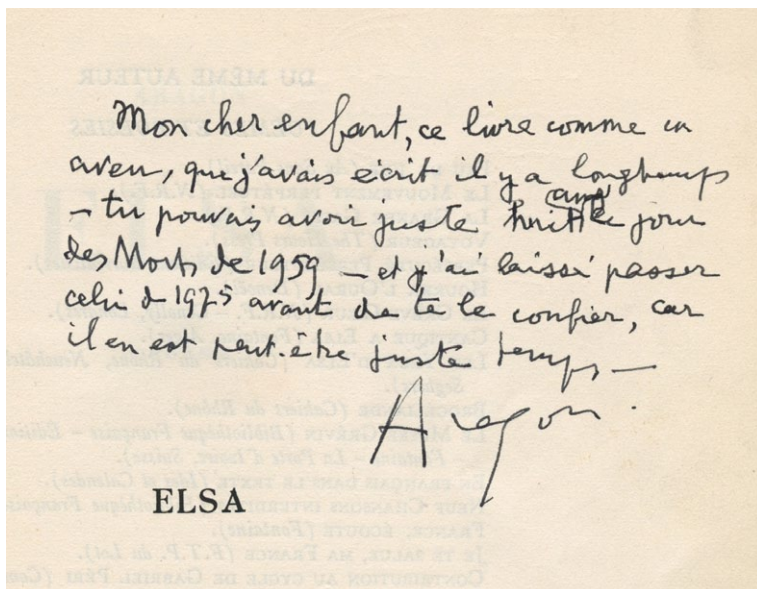 Mon cher enfant, ce livre comme un
aveu, que j'avais écrit il y a longtemps
– tu pouvais avoir juste huit ans le jour
des Morts de 1959 – et j'ai laissé passer
celui de 1975 avant de te le confier, car
il en est peut-être juste temps –
Aragon.
ELSA